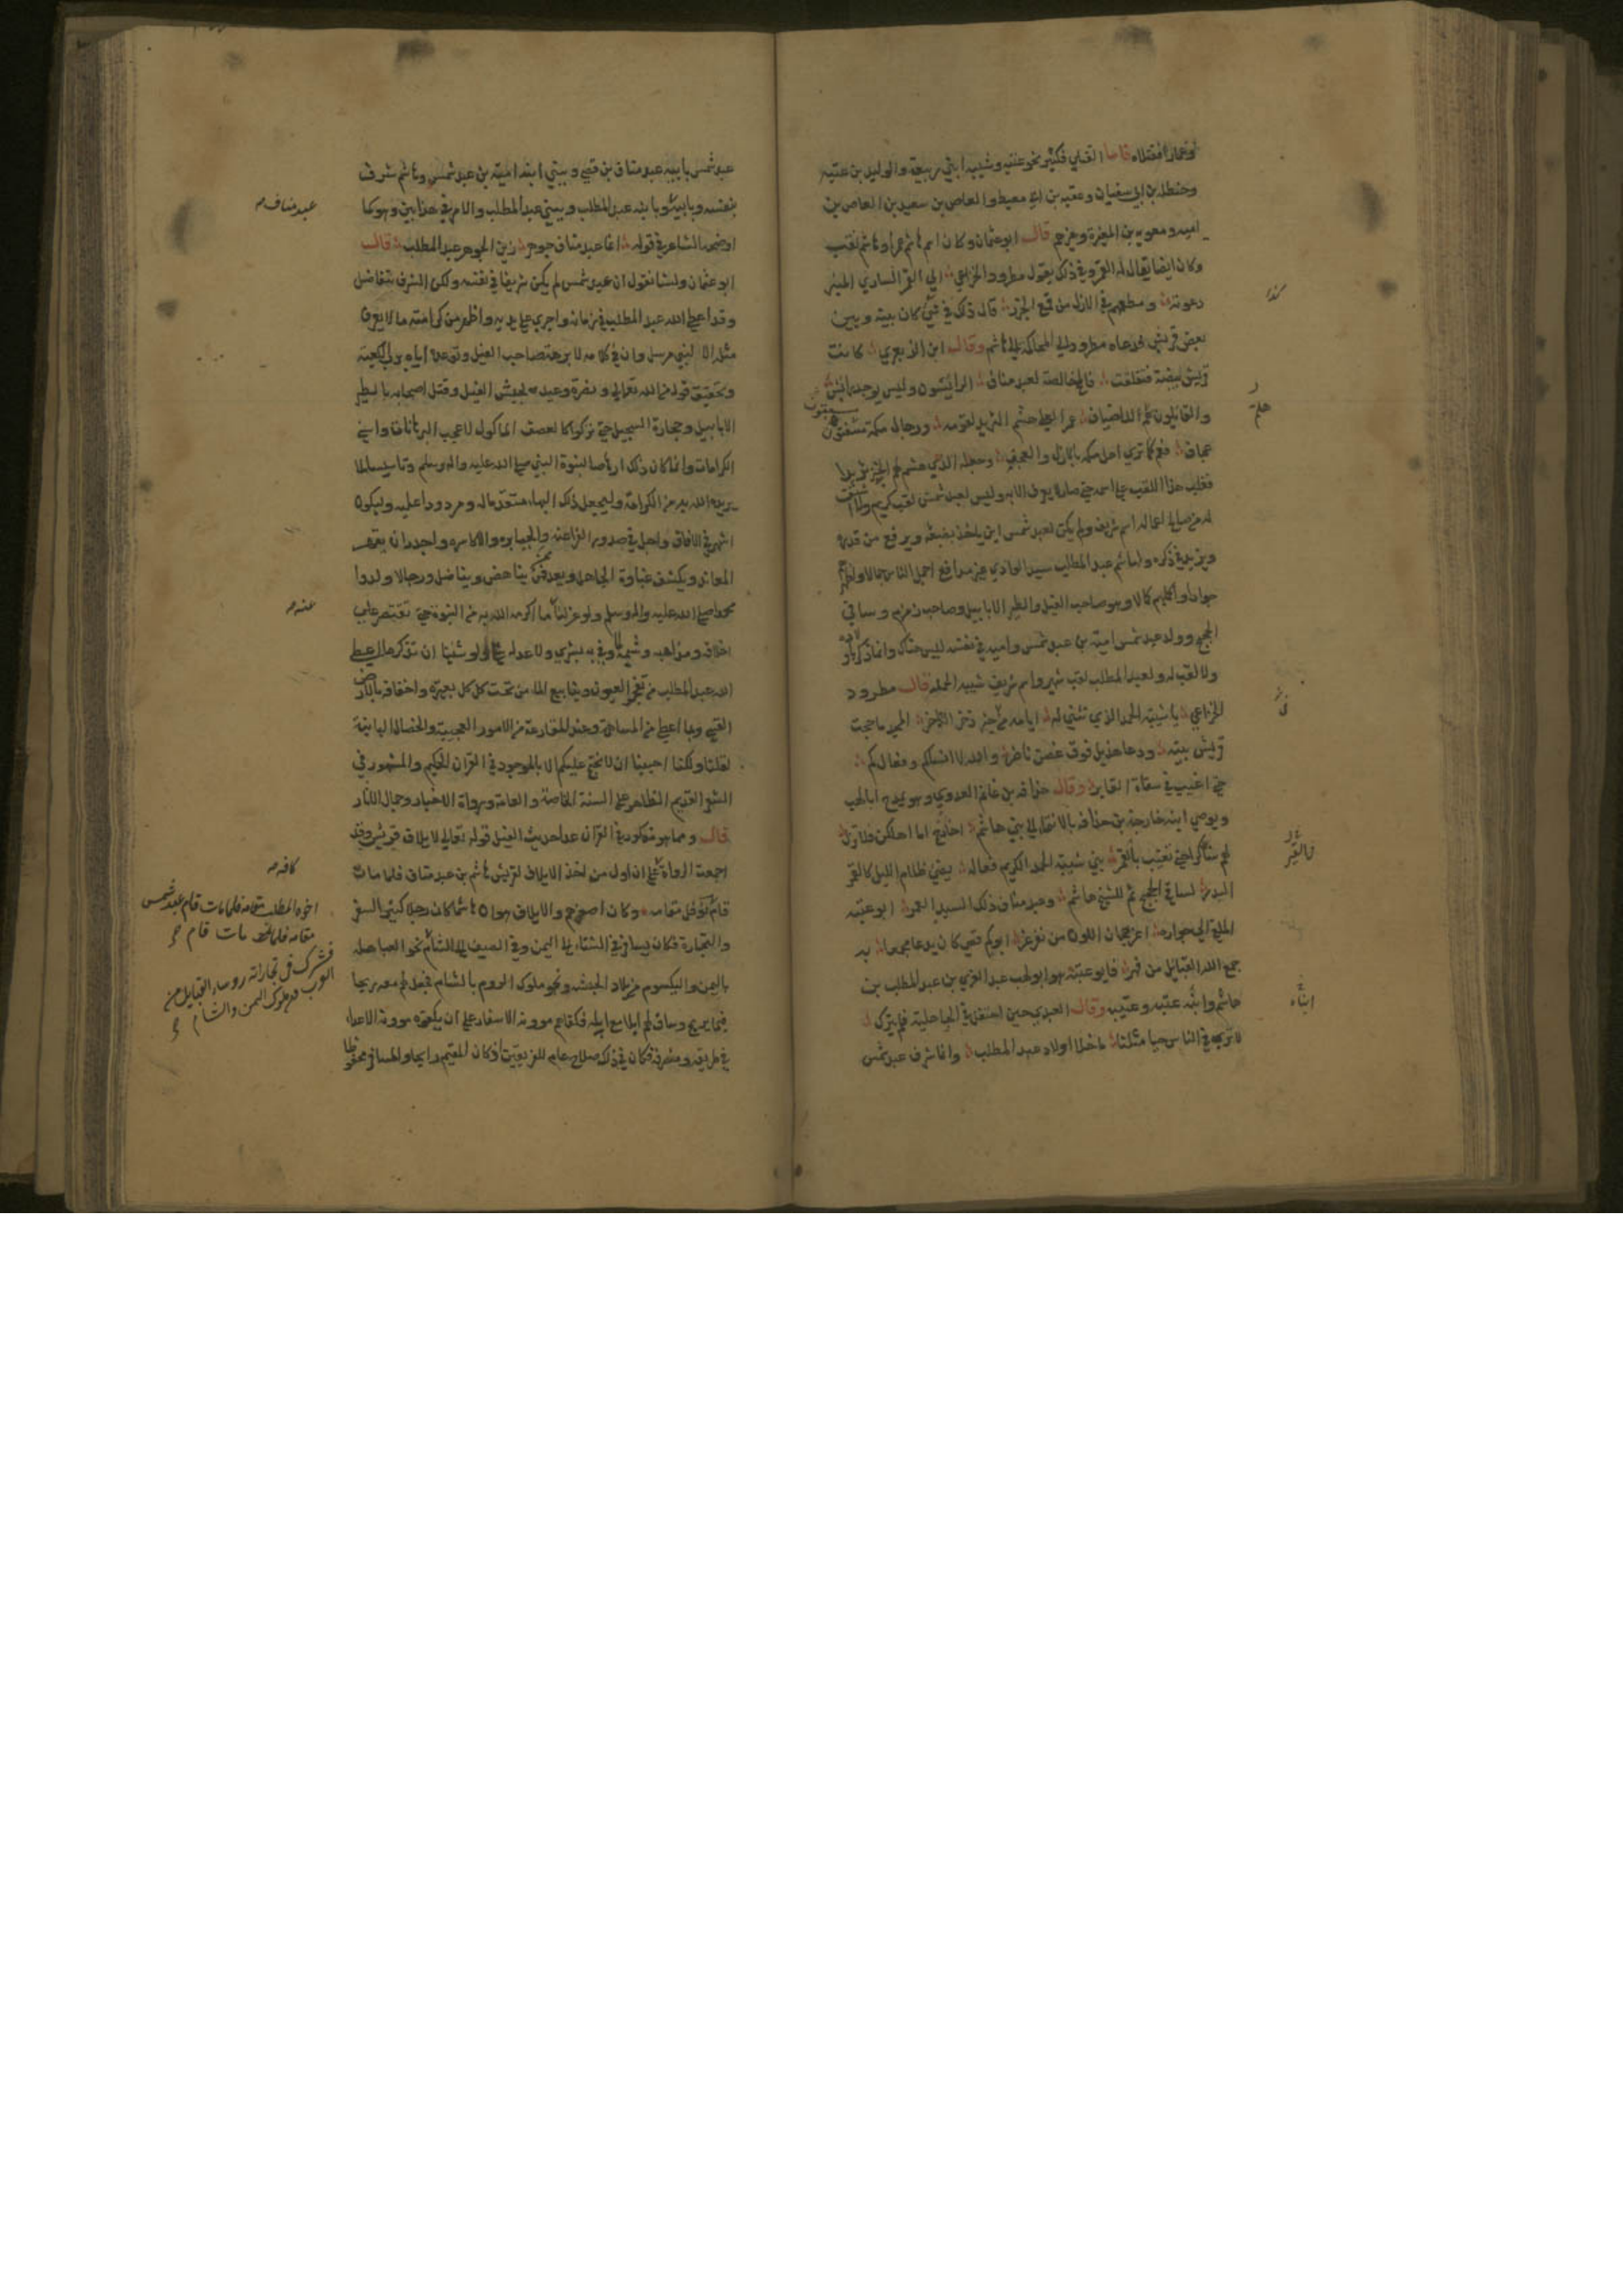 وعمارا فقتلاه قاما القتلي فكثير نحو عتبة وشيبة ابني ربيعة والوليد بن عتبه
وحنظله بن ابي سفيان وعقبه بن ابي معيط والعاص بن سعيد بن العاص بن
اميه ومعويه بن المغيرة وغيرهم قال ابو عثمان وكان اسم هاشم عمرا وهاشم لقب
وكان ايضا يقال له القمر وفي ذلك يقول مطرود الخزاعي الي القمر الساري المنير
دعوته ومطعمهم في الازل من قمع الجزر قال ذلك في شيء كان بينه وبين
بعض قريش فدعاه مطرود الي المحاكمة الي هاشم وقال ابن الزبعري كانت
قريش بيضة فتفلقت فالمخ خالصة لعبد مناف الرائشون وليس يوجد رائش
والقائلون هلم للاضياف عمرو العلي هشم الثريد لقومه ورجال مكة مسنتون
عجاف فعم كما تري اهل مكة بالازل والعجف وجعله الذي هشم لهم الخبز ثريدا
فغلب هذا اللقب علي اسمه حتي صار لا يعرف الا به وليس لعبد شمس لقب كريم ولا اشتق
له من صالح اعماله اسم شريف ولم يكن لعبد شمس ابن ياخذ بضبعه ويرفع من قدره
ويزيد في ذكره ولهاشم عبد المطلب سيد الوادي غير مدافع اجمل الناس جمالا واظهرهم
جوادا واكملهم كمالا وهو صاحب الفيل والطير الابابيل وصاحب زمزم وساقي
الحجيج وولد عبد شمس امية بن عبد شمس واميه في نفسه ليس هناك وانما ذكر باولاده
ولا لقب له ولعبد المطلب لقب شهير واسم شريف شيبه الحمد قال مطرود
الخزاعي يا شيبة الحمد الذي تثني له ايامه من خير ذخر الذاخر المجد ما حجت
قريش بيته ودعا هذيل فوق غصن ناضر والله لا انساكم وفعالكم
حتي اغيب في سفاة القابر وقال حذافه بن غانم العدوي وهو يمدح ابا لهب
ويوصي ابنه خارجة بن حذافه بالانتماء الي بني هاشم اخارج اما اهلكن فلا تزل
لهم شاكرا حتي تغيب بالقبر بني شيبة الحمد الكريم فعاله يضيء ظلام الليل كالقمر
البدر لساقي الحجيج ثم للشيخ هاشم وعبد مناف ذلك السيد الغمر ابو عتبه
الملقي الي جواره اغر هجان اللون من نفر غر ابوكم قصي كان يدعا مجمعا به
جمع الله القبائل من فهر فابو عتبه هو ابو لهب عبد العزي بن عبد المطلب بن
هاشم وابناه عتبه وعتيبه وقال العبدي حين احتفل في الجاهلية فلم يترك
لا تري في الناس حيا مثلنا ما خلا اولاد عبد المطلب وانما شرف عبد شمس
كذا
هلم
بالقبر
ابناه
عبد شمس بابيه عبد مناف بن قصي وبني ابنه امية بن عبد شمس وهاشم شرف
بنفسه وبابيه وبابنه عبد المطلب وبني عبد المطلب والامر في هذا بين وهو كما
اوضحه الشاعر في قوله انما عبد مناف جوهر زين الجوهر عبد المطلب قال
ابو عثمان ولسنا نقول ان عبد شمس لم يكن شريفا في نفسه ولكن الشرف يتفاضل
وقد اعطي الله عبد المطلب في زمانه واجري علي يديه واظهر من كرامته ما لا يعرف
مثله الا لنبي مرسل وان في كلامه لابرهة صاحب الفيل وتوعده اياه برب الكعبة
وتحقيق قوله من الله تعالي ونصره وعيده بحبس الفيل وقتل اصحابه بالطير
الابابيل وحجارة السجيل حتي تركوا كالعصف الماكول لاعجب البرهانات واسني
الكرامات وانما كان ذلك ارهاصا لنبوة النبي صلي الله عليه واله وسلم وتاسيسا لما
يريده الله به من الكرامة وليجعل ذلك البهاء متقدما له ومردودا عليه وليكون
اشهر في الافاق واجل في صدور الفراعنه والجبابره والاكاسره واجدر ان يقهر
المعاند ويكشف غباوة الجاهل وبعد فمن يناهض ويناضل ورجالا ولدوا
محمدا صلي الله عليه واله وسلم ولو عزلنا ما اكرمه الله به من النبوة حتي نقتصر علي
اخلاقه ومذاهبه وشيمه لما وفي به بشر ولا عدله شيء ولو شئنا ان نذكر ما اعطي
الله عبد المطلب من تفجر العيون وينابيع الماء من تحت كلكل بعيره واخفافه بالارض
القسي وبما اعطي من المساهمة وعند المقارعة من الامور العجيبة والخصال البائنة
لقلنا ولكنا احببنا ان لا نحتج عليكم الا بالموجود في القران الحكيم والمشهور في
الشعر القديم الظاهر علي السنة الخاصة والعامة ورواة الاخبار وحمال الاثار
قال ومما هو مذكور في القران عدا حديث الفيل قوله تعالي لايلاف قريش وقد
اجمعت الرواة علي ان اول من اخذ الايلاف لقريش هاشم بن عبد مناف فلما مات
قام نوفل مقامه وكان اصغرهم والايلاف هو ان هاشما كان رجلا كثير السفر
والتجارة فكان يسافر في الشتاء الي اليمن وفي الصيف الي الشام نحو العباهله
باليمن واليكسوم من بلاد الحبشه ونحو ملوك الروم بالشام فجعل لهم معه ربحا
فيما يربح وساق لهم ابلا مع ابله فكفاهم موونة الاسفار علي ان يكفوه موونة الاعداء
في طريقه ومنصرفه فكان في ذلك صلاح عام للفريقين اذ كان المقيم رابحا والمسافر محفوظا
عبد مناف
عنه
كافه
اخوه المطلب مقامه فلما مات قام عبد شمس
مقامه فلما مات قام
فشرك في تجاراته روساء القبايل من
العرب ومن ملوك اليمن والشام